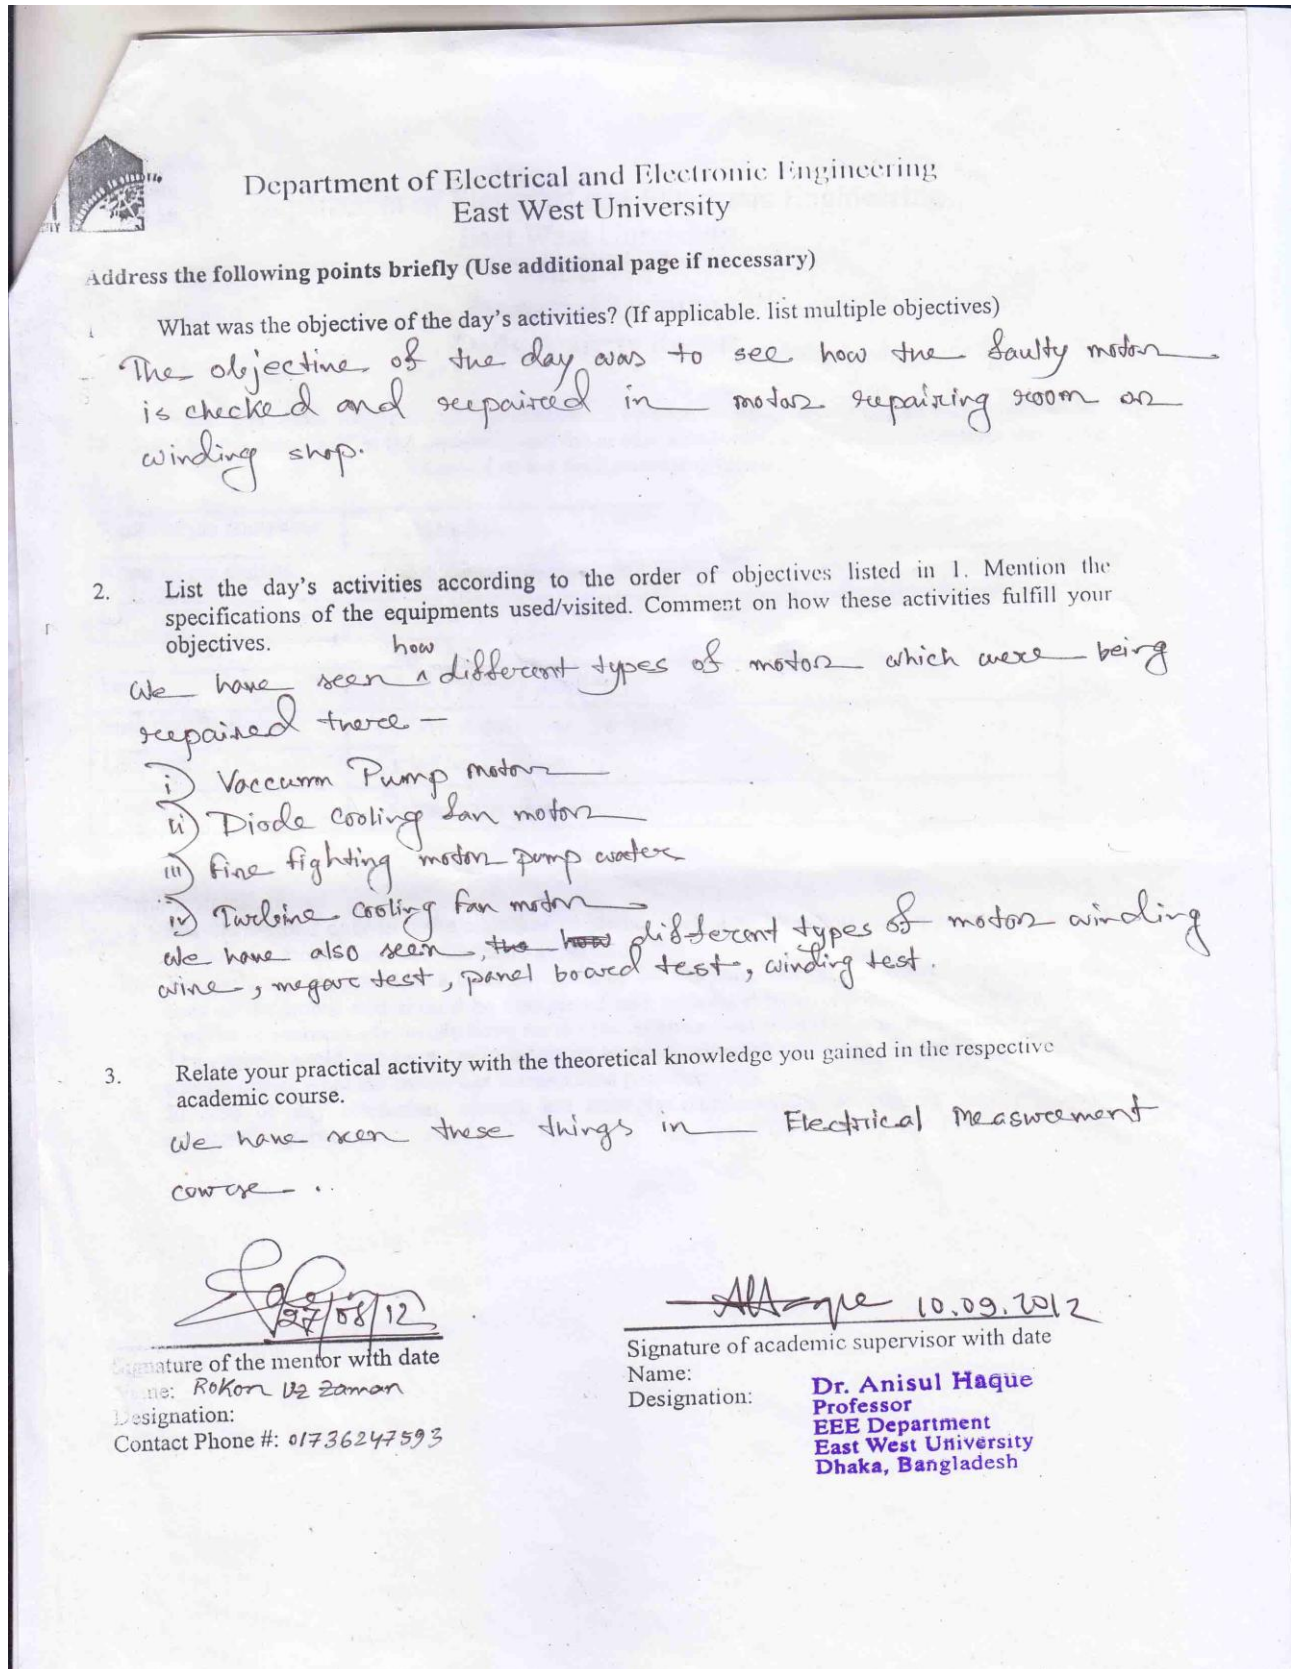 Department of Electrical and Electronic Engineering
East West University
Address the following points briefly (Use additional page if necessary)
What was the objective of the day's activities? (If applicable. list multiple objectives)
The objective of the day was to see how the faulty motor
is checked and repaired in motor repairing room or
winding shop.
2. List the day's activities according to the order of objectives listed in 1. Mention the
specifications of the equipments used/visited. Comment on how these activities fulfill your
objectives.
how
We have seen ^ different types of motor which were being
repaired there —
i) Vaccumm Pump motor
ii) Diode cooling fan motor
iii) Fire fighting motor pump water
iv) Turbine cooling fan motor
We have also seen, the how different types of motor winding
wire, megar test, panel board test, winding test.
3. Relate your practical activity with the theoretical knowledge you gained in the respective
academic course.
We have seen these things in Electrical Measurement
course.
27/08/12
AHaque 10.09.2012
Signature of the mentor with date
Name: Rokon Uz Zaman
Designation:
Contact Phone #: 01736247593
Signature of academic supervisor with date
Name:
Designation:
Dr. Anisul Haque
Professor
EEE Department
East West University
Dhaka, Bangladesh